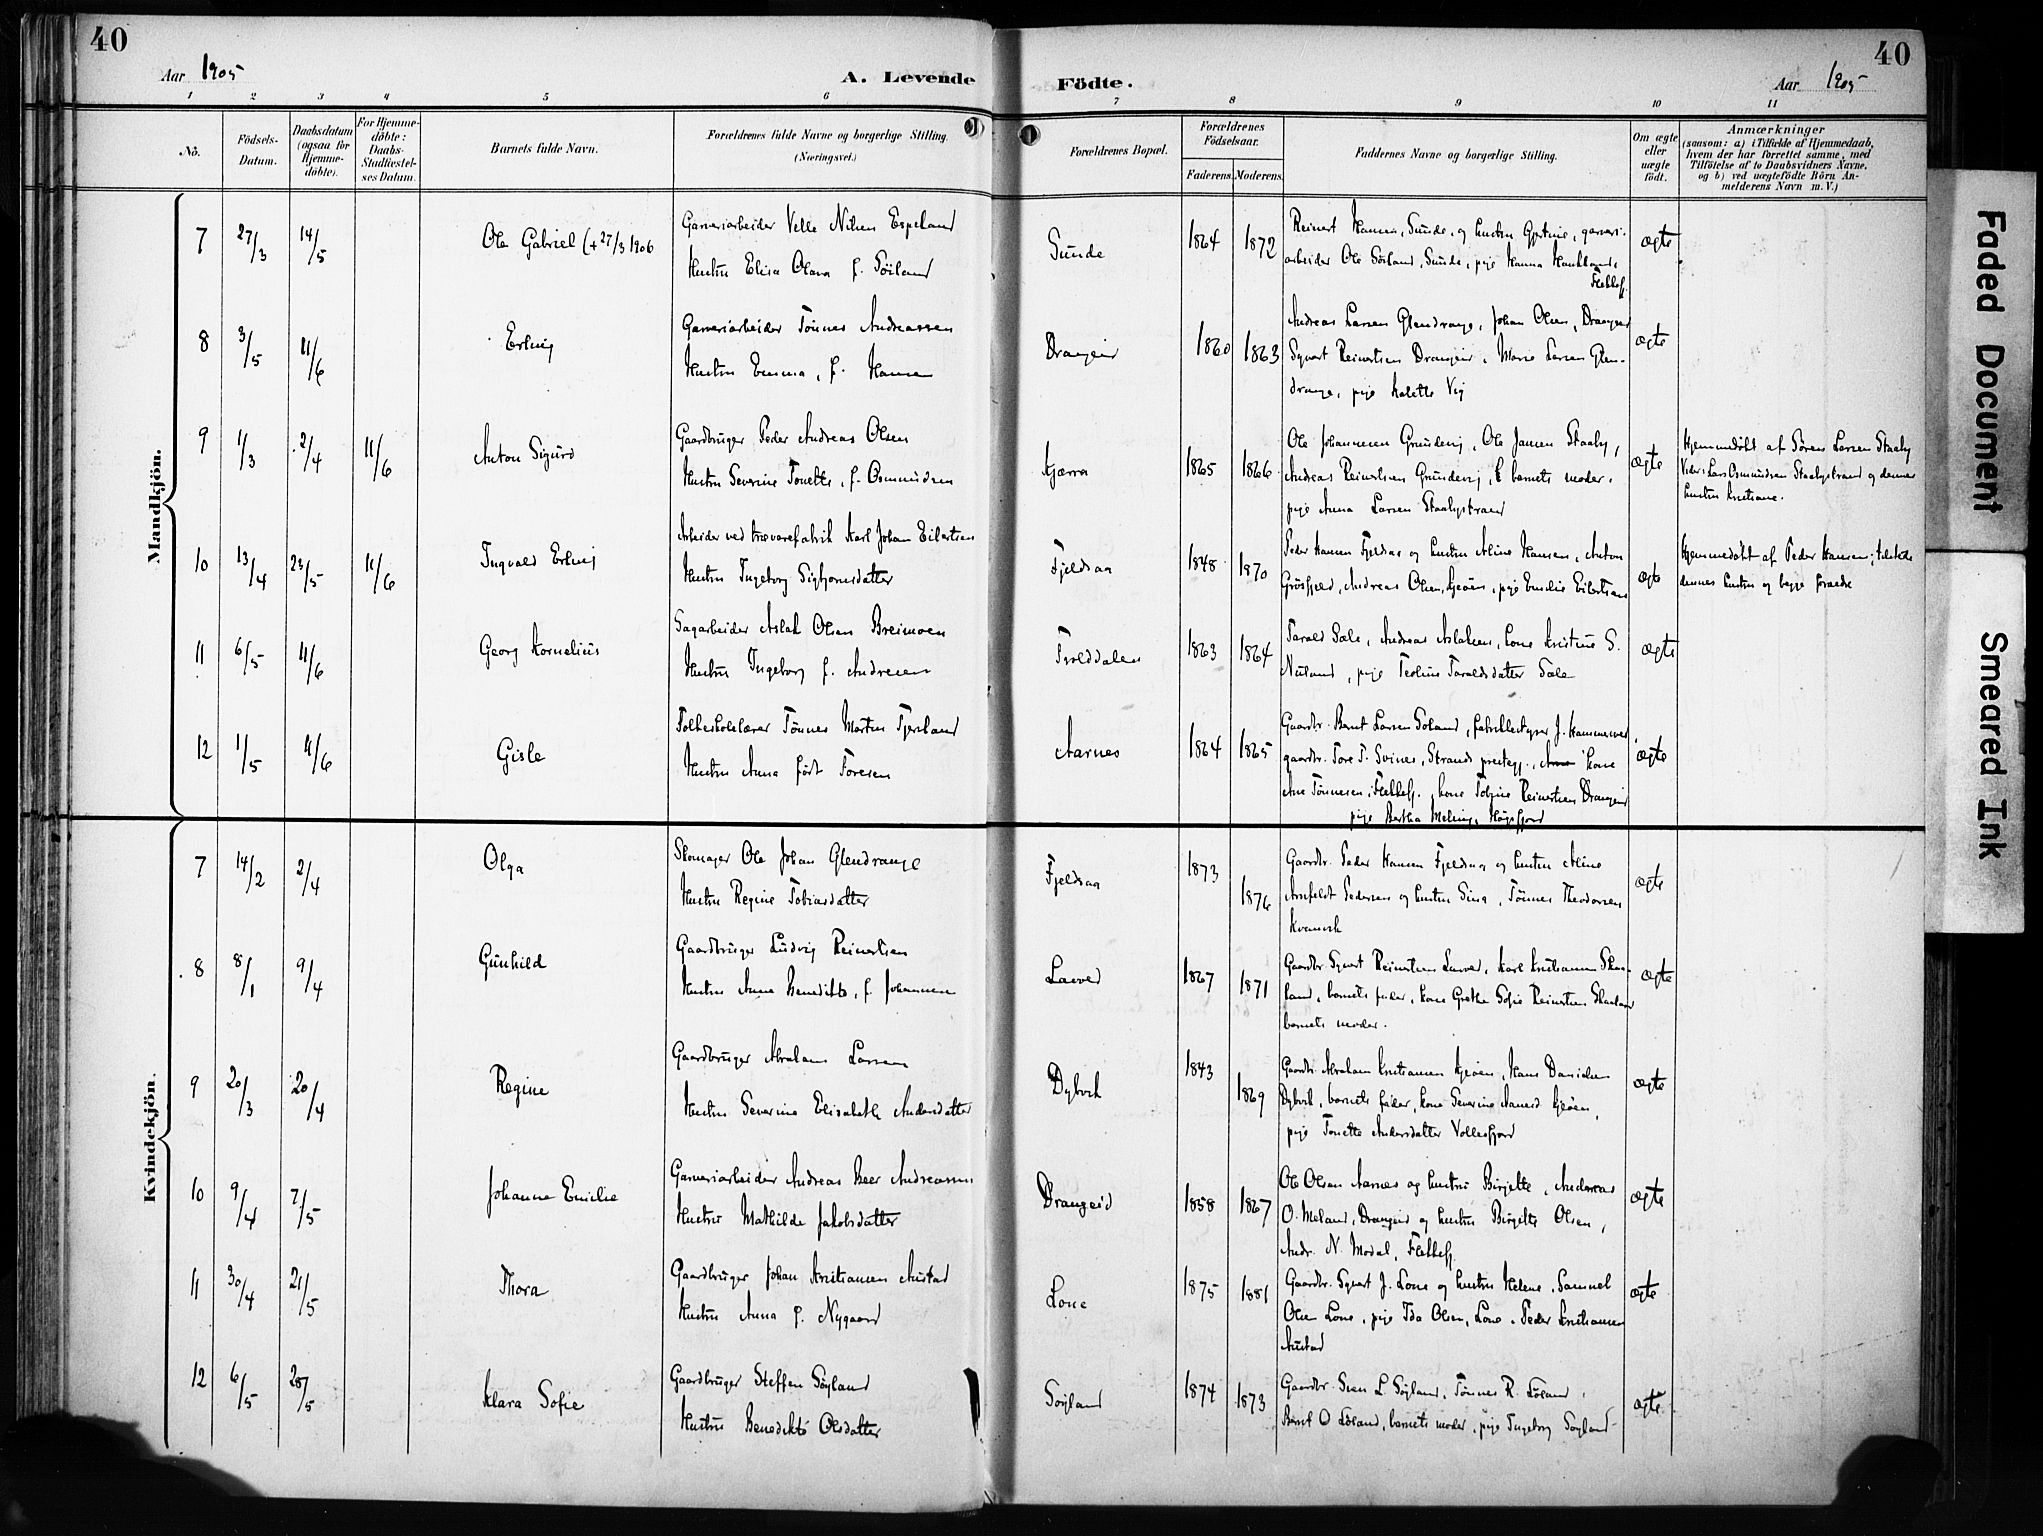 40
40
Aar 1905
A. Levende Födte.
Aar 1905
1 2 3 4 5 6 7 8 9 10 11
No.
Födsels-Datum.
Daabsdatum (ogsaa for Hjemme-döbte).
For Hjemme-döbte: Daabs-Stadfæstel-ses Datum.
Barnets fulde Navn.
Forældrenes fulde Navne og borgerlige Stilling.
(Næringsvei.)
Forældrenes Bopæl.
Forældrenes Födselsaar.
Faderens. Moderens.
Faddernes Navne og borgerlige Stilling.
Om ægte eller uægte födt.
Anmærkninger
(saasom: a) i Tilfælde af Hjemmedaab, hvem der har forrettet samme, med Tilföielse af to Daabsvidners Navne. og b) ved uægtefödte Börn Anmelderens Navn m. V.)
Mandkjön.
7 27/3 14/5 Ole Gabriel (+27/3 1906
Garveriarbeider Velle Nilsen Espeland
Hustru Elisa Olava f. Söiland
Sunde 1864 1872
Reinert Hansen, Sunde, og hustru Gjertine, garveri-
arbeider Ole Sörland, Sunde, pige Hanna Haukland,
Flekkefj.
ægte
8 3/5 11/6 Erling
Garveriarbeider Tönnes Andreassen
Hustru Emma, f. Hansen
Drangeid 1860 1863
Andreas Larsen Glendrange, Johan Olsen, Drangeid
Sigvart Reinertsen Drangeid, Marie Larsen Glen-
drange, pige Valette Vig
ægte
9 1/3 2/4 11/6 Anton Sigurd
Gaardbruger Peder Andreas Olsen
Hustru Severine Tonette, f. Osmundsen
Kjørra 1865 1866
Ole Johannesen Grundevig, Ole Jansen Staaby,
Andreas Reinertsen Grundevig, barnets moder,
pige Anna Larsen Staalystrand
ægte
Hjemmedøbt af Sören Larsen Staaly
Vidn: Lars Osmundsen Staalystrand og dennes
hustru Kristiane.
10 13/4 23/5 11/6 Ingvald Erling
Arbeider ved trævarefabrik Karl Johan Eilertsen
Hustru Ingeborg Sigbjørnsdatter
Fjeldsaa 1848 1870
Peder Hansen Fjeldsaa og hustru Aline Hansen, Anton
Grösfjeld, Andreas Olsen, Kjeöen, pige Emilie Eilertsen
ægte
Hjemmedøbt af Peder Hansen; tilstede
dennes hustru og begge forældre
11 6/5 11/6 Georg Kornelius
Sagarbeider Aslak Olsen Breimoen
Hustru Ingeborg f. Andresen
Trolddalen 1863 1864
Tarald Sæle, Andreas Aslaksen, kone Kristine S.
Nuland, pige Teoline Taraldsdatter Sæle
ægte
12 1/5 11/6 Gisle
Folkeskolelærer Tönnes Martin Fjersland
Hustru Anna født Foresen
Aarnes 1864 1865
Gaardbr. Bernt Larsen Soland, fabrikbestyrer J. Hammersved,
gaardbr. Tore T. Svines, Strands prestegj., kone
Ane Tönnesen, Flekkefj., kone Tobine Reinertsen Drangeid
pige Bertha Meling, Høgsfjord
ægte
Kvindekjön.
7 14/2 2/4 Olga
Skomager Ole Johan Glendrange
Hustru Regine Tobiasdatter
Fjeldsaa 1873 1876
Gaardbr. Peder Hansen Fjeldsaa og hustru Aline
Arnfeldt Pedersen og hustru Sina, Tönnes Theodorsen
Kvanvik
ægte
8 8/1 9/4 Gunhild
Gaardbruger Ludvig Reinertsen
Hustru Anna Benedikte, f. Johannesen
Larved 1867 1871
Gaardbr. Sigvart Reinertsen Larved, Karl Kristiansen Skar-
land, barnets fader, kone Grethe Sofie Reinertsen Skarland
barnets moder.
ægte
9 20/3 20/4 Regine
Gaardbruger Abraham Larsen
Hustru Severine Elisabeth Andersdatter
Dybvik 1843 1869
Gaardbr. Abraham Kristiansen Kjeöen, Hans Danielsen
Dybvik, barnets fader, kone Severine Aanesd. Kjeöen,
pige Tonette Andersdatter Vollesfjord
ægte
10 9/4 7/5 Johanne Emilie
Garveriarbeider Andreas Beer Andreassen
Hustru Mathilde Jakobsdatter
Drangeid 1858 1867
Ole Olsen Aarnes og hustru Birgitte, Andreas
O. Meland, Drangeid og hustru Birgitte Olsen,
Andr. N. Modal, Flekkefj.
ægte
11 30/4 21/5 Thora
Gaardbruger Johan Kristiansen Austad
Hustru Anna f. Nygaard
Lone 1875 1881
Gaardbr. Sigvart J. Lone og hustru Helene, Samuel
Olsen Lone, pige Ida Olsen, Lone, Peder Kristiansen
Austad
ægte
12 6/5 28/5 Klara Sofie
Gaardbruger Steffen Söyland
Hustru Benedikte Olsdatter
Söyland 1874 1873
Gaardbr. Sven L. Söyland, Tönnes R. Löland,
Bernt O Löland, barnets moder, pige Ingeborg Söyland
ægte
Faded Document
Smeared Ink